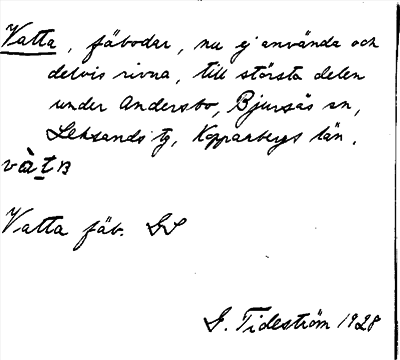 Vatta, fäbodar, nu ej använda och
delvis rivna, till största delen
under Andersbo, Bjursås sn,
Leksands tg, Kopparbergs län.
Vatta fäb. GS
G. Tideström 1928